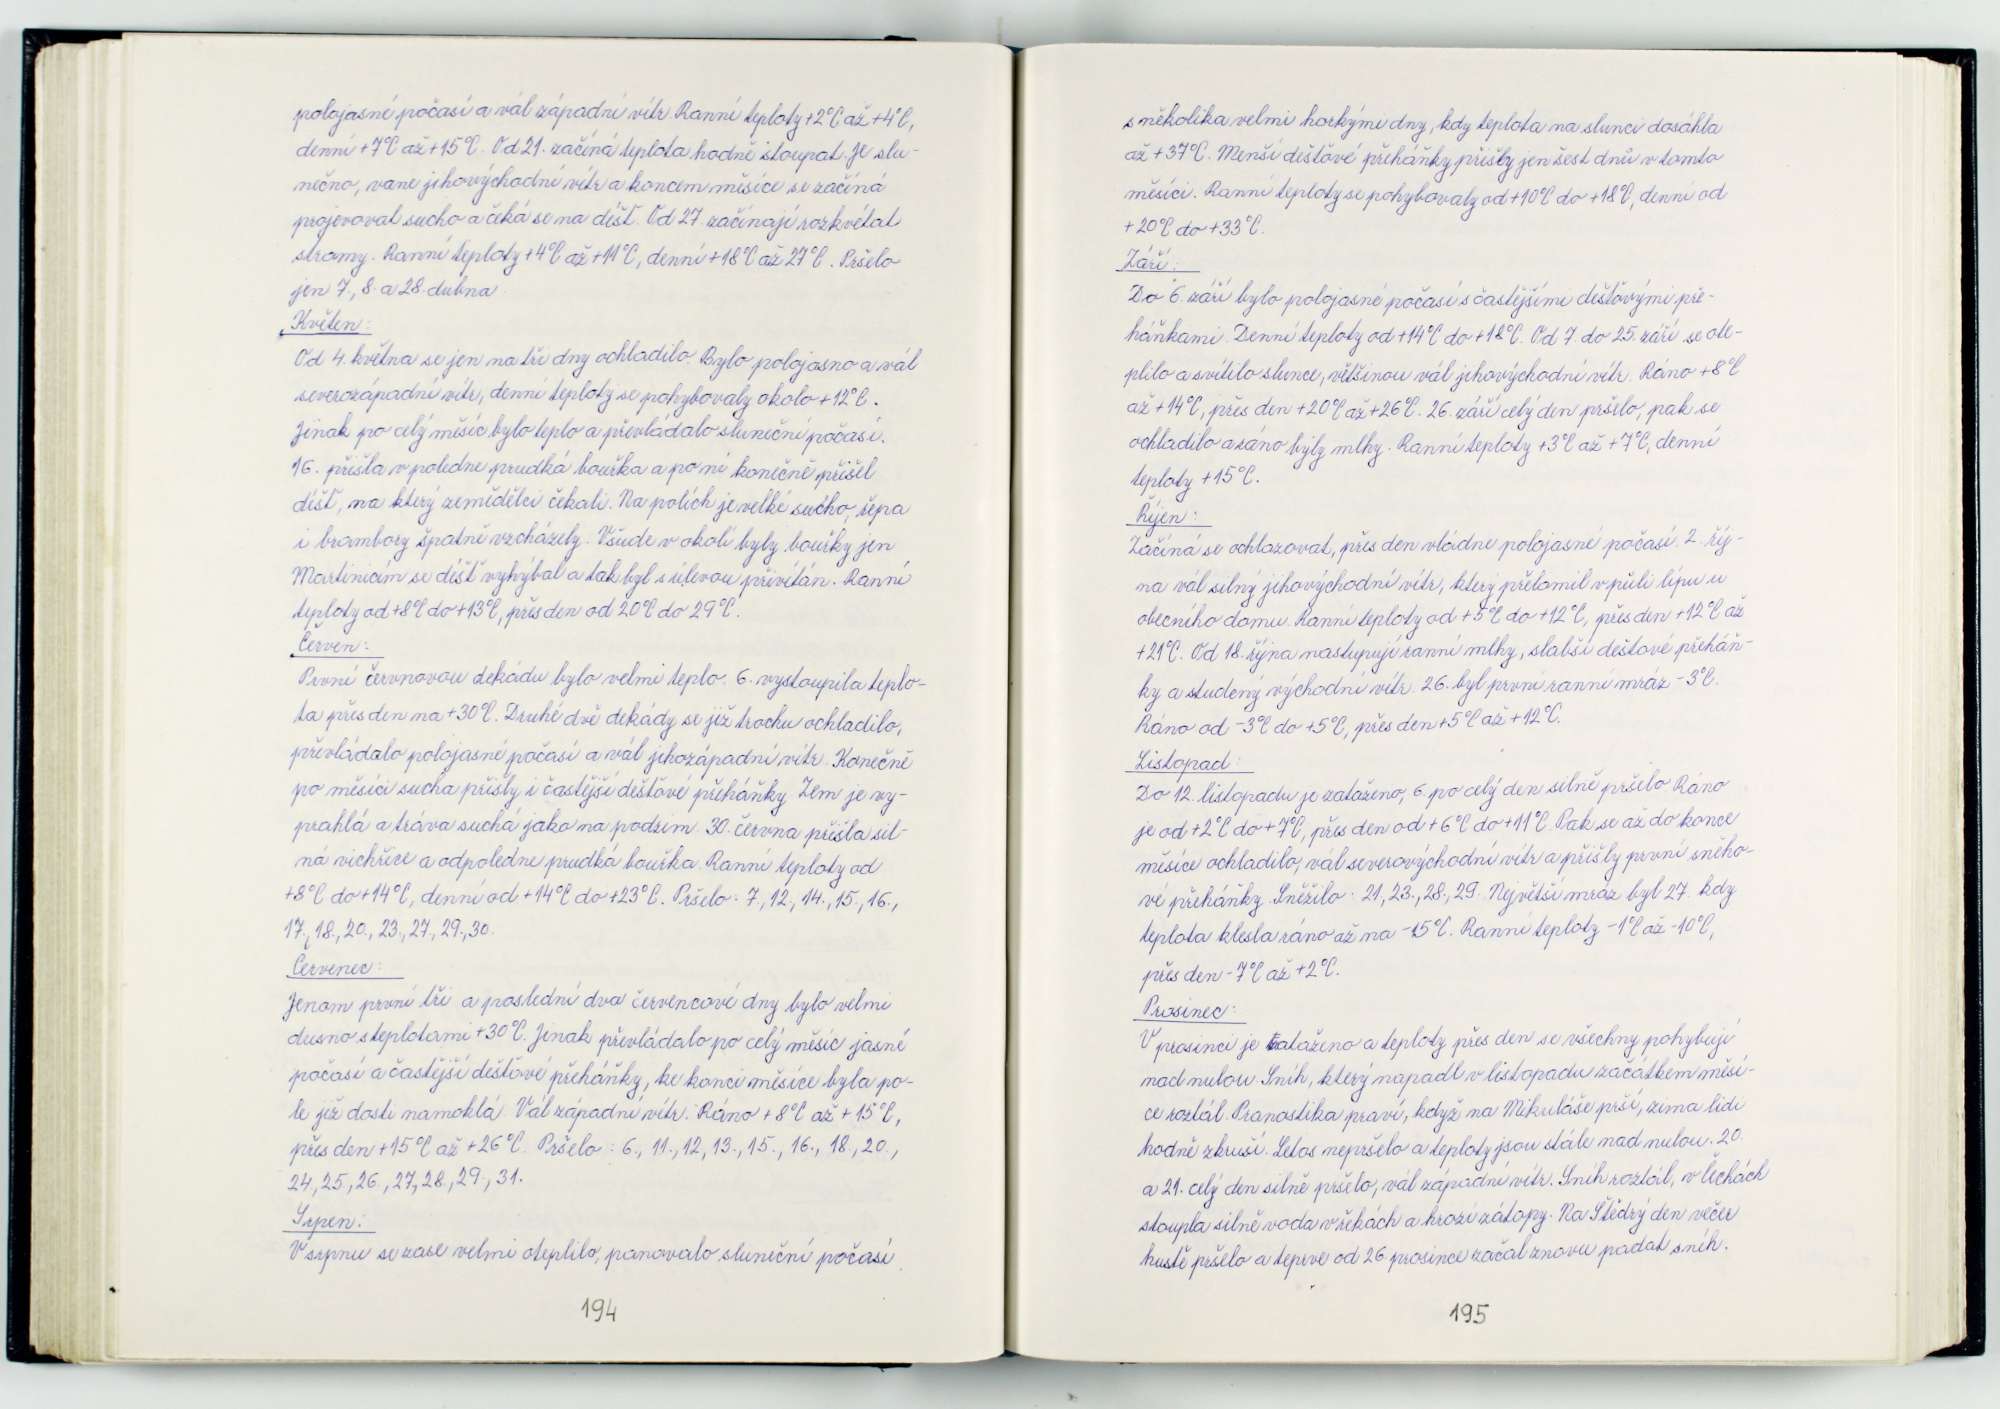 polojasné počasí a vál západní vítr. Ranní teploty +2°C až +4°C,
denní +7°C až +15°C. Od 21. začíná teplota hodně stoupat. Je slu-
nečno, vane jihovýchodní vítr a koncem měsíce se začíná
projevovat sucho a čeká se na déšť. Od 27. začínají rozkvétat
stromy. Ranní teploty +4°C až +11°C, denní +18°C až 27°C. Pršelo
jen 7., 8. a 28. dubna.
Květen:
Od 4. května se jen na tři dny ochladilo. Bylo polojasno a vál
severozápadní vítr, denní teploty se pohybovaly okolo +12°C.
Jinak po celý měsíc bylo teplo a převládalo sluneční počasí.
16. přišla v poledne prudká bouřka a po ní konečně přišel
déšť, na který zemědělci čekali. Na polích je velké sucho, řepa
i brambory špatně vzcházely. Všude v okolí byly bouřky jen
Martinicím se déšť vyhýbal a tak byl s úlevou přivítán. Ranní
teploty od +8°C do +13°C, přes den od 20°C do 29°C.
Červen:
První červnovou dekádu bylo velmi teplo. 6. vystoupila teplo-
ta přes den na +30°C. Druhé dvě dekády se již trochu ochladilo,
převládalo polojasné počasí a vál jihozápadní vítr. Konečně
po měsíci sucha přišly i častější dešťové přeháňky. Zem je vy-
prahlá a tráva suchá jako na podzim. 30. června přišla sil-
ná vichřice a odpoledne prudká bouřka. Ranní teploty od
+8°C do +14°C, denní od +14°C do +23°C. Pršelo: 7., 12., 14., 15., 16.,
17., 18., 20., 23., 27., 29., 30.
Červenec:
Jenom první tři a poslední dva červencové dny bylo velmi
dusno s teplotami +30°C. Jinak převládalo po celý měsíc jasné
počasí a častější dešťové přeháňky, ke konci měsíce byla po-
le již dosti namoklá. Vál západní vítr. Ráno +8°C až +15°C,
přes den +15°C až +26°C. Pršelo: 6., 11., 12, 13., 15., 16., 18., 20.,
24, 25., 26., 27, 28., 29., 31.
Srpen:
V srpnu se zase velmi oteplilo, panovalo sluneční počasí
194
s několika velmi horkými dny, kdy teplota na slunci dosáhla
až +37°C. Menší dešťové přeháňky přišly jen šest dnů v tomto
měsíci. Ranní teploty se pohybovaly od +10°C do +18°C, denní od
+20°C do +33°C.
Září:
Do 6. září bylo polojasné počasí s častějšími dešťovými pře-
háňkami. Denní teploty od +14°C do +18°C. Od 7. do 25. září se ote-
plilo a svítilo slunce, většinou vál jihovýchodní vítr. Ráno +8°C
až +14°C, přes den +20°C až +26°C. 26. září celý den pršelo, pak se
ochladilo a ráno byly mlhy. Ranní teploty +3°C až +7°C, denní
teploty +15°C.
Říjen:
Začíná se ochlazovat, přes den vládne polojasné počasí. 2. říj-
na vál silný jihovýchodní vítr, který přelomil v půli lípu u
obecního domu. Ranní teploty od +5°C do +12°C, přes den +12°C až
+21°C. Od 18. října nastupují ranní mlhy, slabší dešťové přeháň-
ky a studený východní vítr. 26. byl první ranní mráz -3°C.
Ráno od -3°C do +5°C, přes den +5°C až +12°C.
Listopad:
Do 12. listopadu je zataženo, 6. po celý den silně pršelo. Ráno
je od +2°C do +7°C, přes den od +6°C do +11°C. Pak se až do konce
měsíce ochladilo, vál severovýchodní vítr a přišly první sněho-
vé přeháňky. Sněžilo: 21., 23., 28., 29. Největší mráz byl 27. kdy
teplota klesla ráno až na -15°C. Ranní teploty -1°C až -10°C,
přes den -7°C až +2°C.
Prosinec:
V prosinci je zataženo a teploty přes den se všechny pohybují
nad nulou. Sníh, který napadl v listopadu začátkem měsí-
ce roztál. Pranostika praví, když na Mikuláše prší, zima lidi
hodně zkruší. Letos nepršelo a teploty jsou stále nad nulou. 20.
a 21. celý den silně pršelo, vál západní vítr. Sníh roztál, v Čechách
stoupla silně voda v řekách a hrozí zátopy. Na Štědrý den večer
hustě pršelo a teprve od 26 prosince začal znovu padat sníh.
195